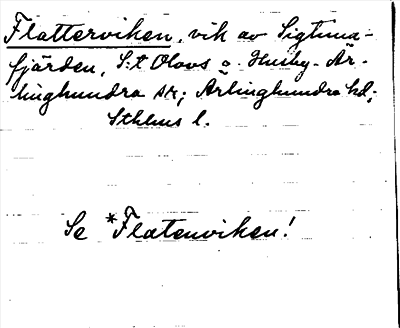 Flatterviken, vik av Sigtuna-
fjärden, S:t Olovs o. Husby-Är-
linghundra sn; Ärlinghundra hd;
Sthlms l.
Se *Flatenviken!